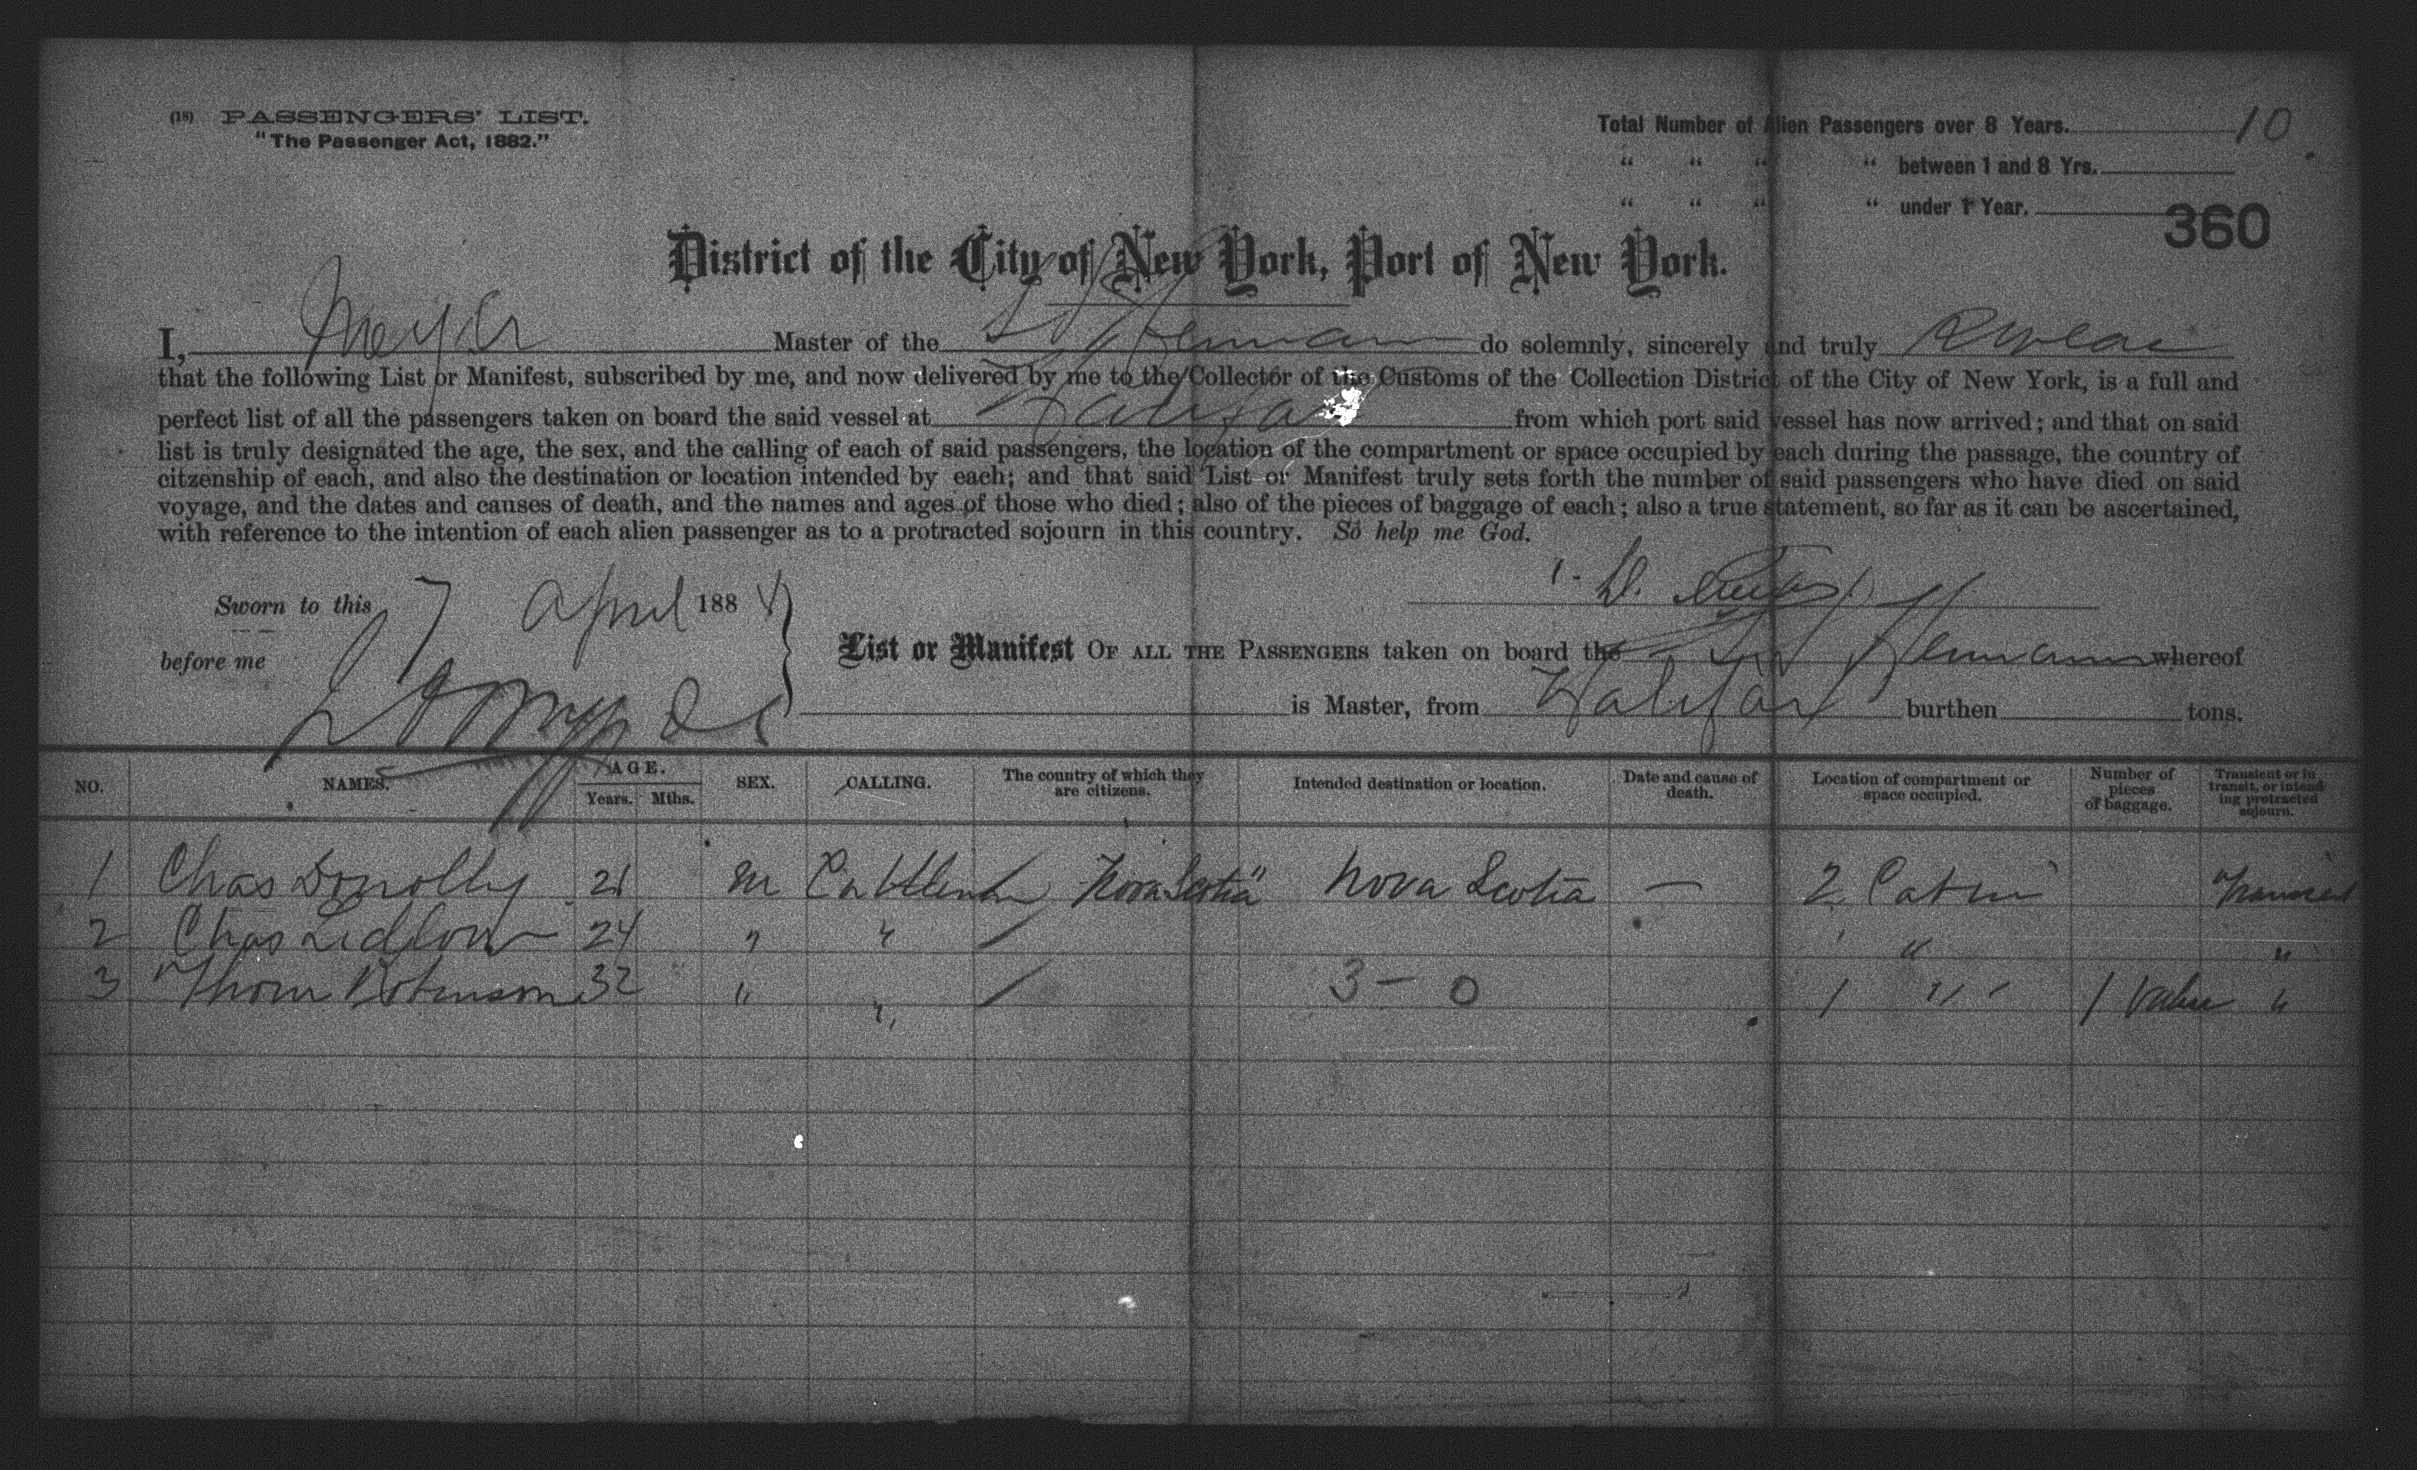 (18) PASSENGERS' LIST.
"The Passenger Act, 1882."
Total Number of Alien Passengers over 8 Years. 10
" " " " between 1 and 8 Yrs.
" " " " under 1 Year.
360
District of the City of New York, Port of New York.
I, Meyer Master of the SS Hermann do solemnly, sincerely and truly swear
that the following List or Manifest, subscribed by me, and now delivered by me to the Collector of the Customs of the Collection District of the City of New York, is a full and
perfect list of all the passengers taken on board the said vessel at Halifax from which port said vessel has now arrived; and that on said
list is truly designated the age, the sex, and the calling of each of said passengers, the location of the compartment or space occupied by each during the passage, the country of
citzenship of each, and also the destination or location intended by each; and that said List or Manifest truly sets forth the number of said passengers who have died on said
voyage, and the dates and causes of death, and the names and ages of those who died; also of the pieces of baggage of each; also a true statement, so far as it can be ascertained,
with reference to the intention of each alien passenger as to a protracted sojourn in this country. So help me God.
Sworn to this 7 April 188
before me
List or Manifest OF ALL THE PASSENGERS taken on board the SS Hermann whereof
is Master, from Halifax burthen tons.
NO. NAMES. AGE. Years. Mths. SEX. CALLING. The country of which they are citizens. Intended destination or location. Date and cause of death. Location of compartment or space occupied. Number of pieces of baggage. Transient or in transit, or intending protracted sojourn.
1 Chas Donolly 21 m Cattleman Nova Scotia Nova Scotia — 2 Cabin Transient
2 Chas Ledlow 24 " " " "
3 Thom Robinson 32 " " 3 - 0 1 " 1 Valise "